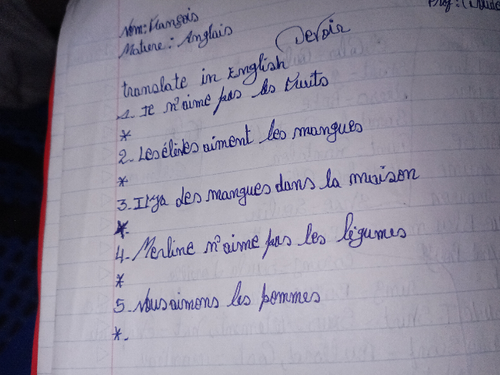 Nom: François
Matiere: Anglais
Devoir
translate in English
1. Je n'aime pas les fruits
*
2. Les élèves aiment les mangues
*
3. Il y a des mangues dans la maison
*
4. Merline n'aime pas les légumes
*
5. Nous aimons les pommes
*.